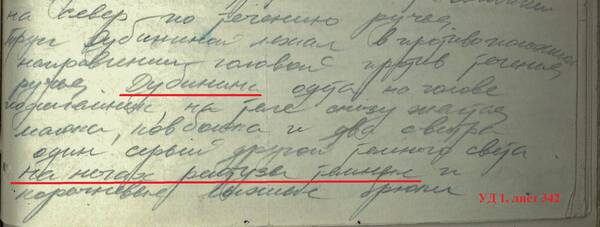 на север по течению ручья,
Труп Дубининой лежал в противоположном
направлении головой против течения
ручья. Дубинина одета на голове
подшлемник на теле снизу желтая
майка, ковбойка и два свитра
один серый другой темного света
На ногах рейтузы темные и
коричневые лыжные брюки
УД 1, лист 342